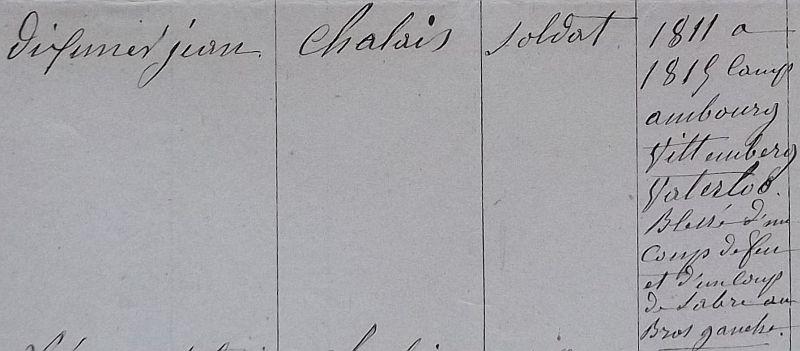 jean. Chalais soldat 1811 a
1815 Camp
ambourg
Vittemberg
Vaterloo.
Blessé d'un
coup de feu
et d'un Coup
de Sabre au
Bras gauche.